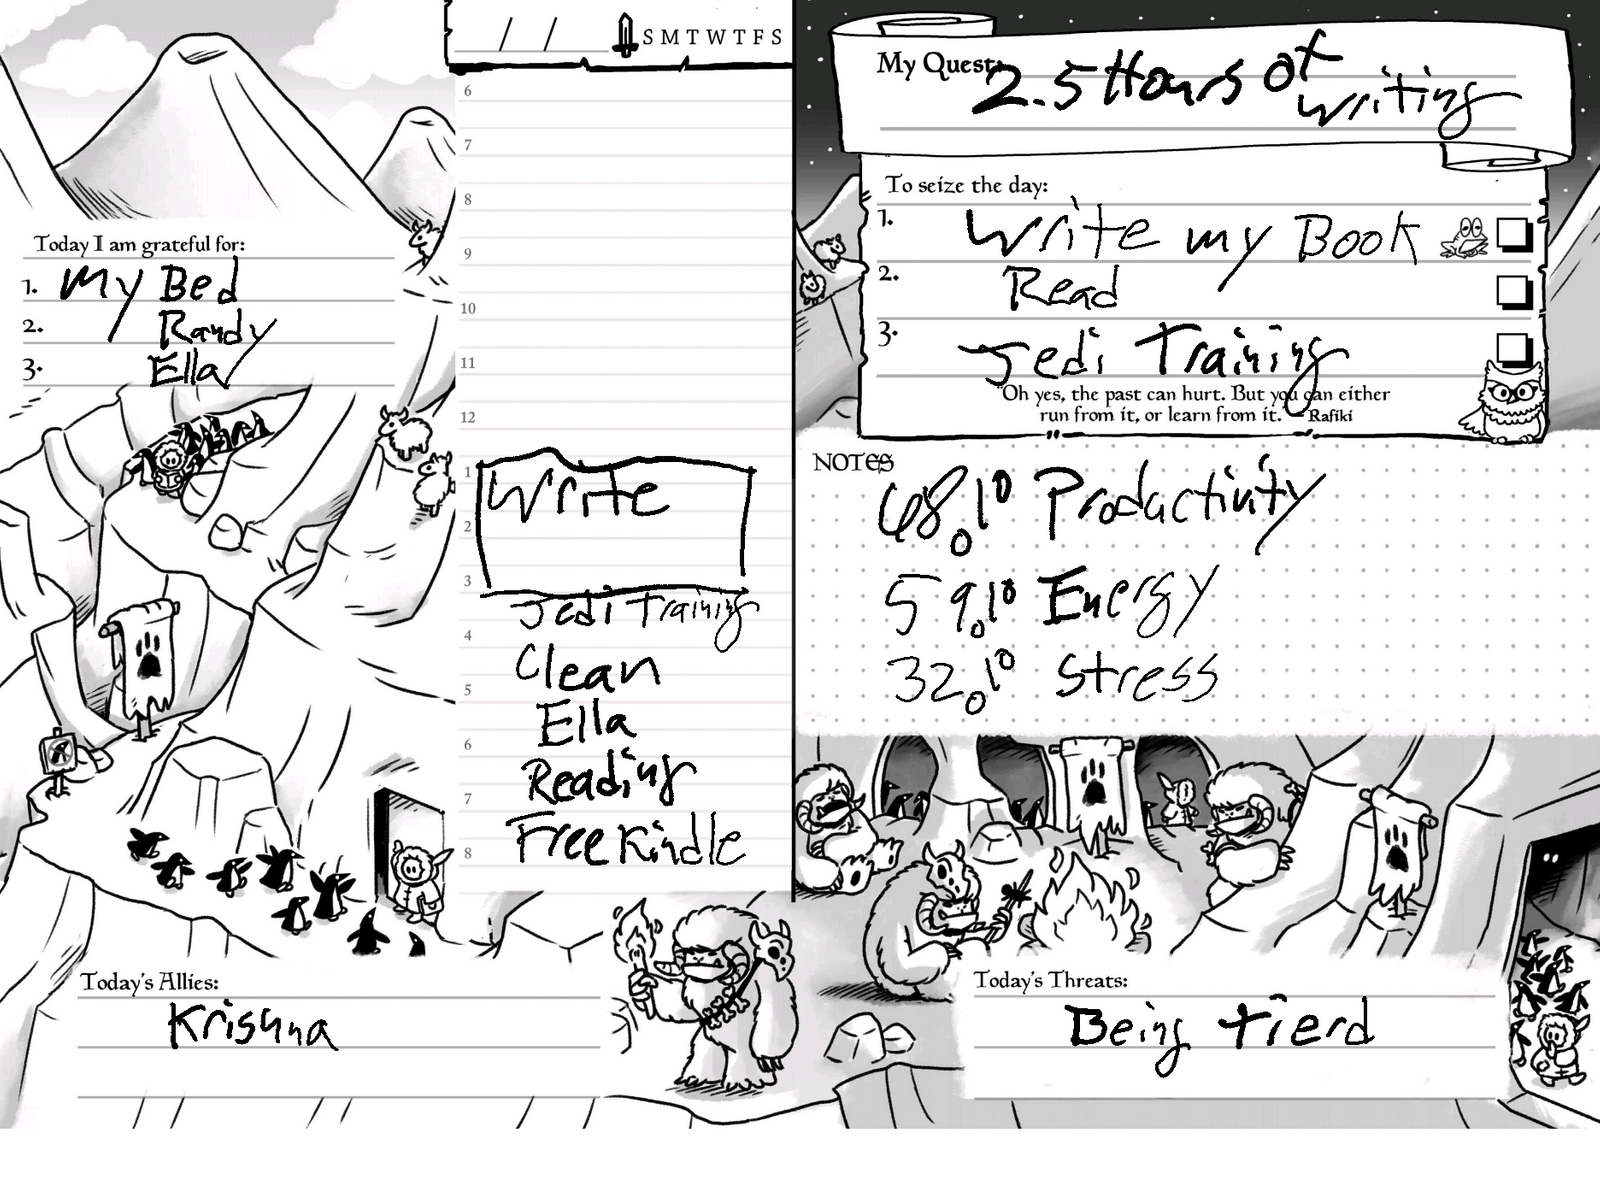 / / S M T W T F S
Today I am grateful for:
1. My Bed
2. Randy
3. Ella
6
7
8
9
10
11
12
1 Write
2
3
Jedi Training
4
Clean
5
Ella
6
Reading
7
Free Kindle
8
Today's Allies:
Krishna
My Quest: 2.5 Hours of
writing
To seize the day:
1. Write my Book
2. Read
3. Jedi Training
"Oh yes, the past can hurt. But you can either
run from it, or learn from it." Rafiki
NOTES
68% Productivity
59% Energy
32% Stress
Today's Threats:
Being tierd